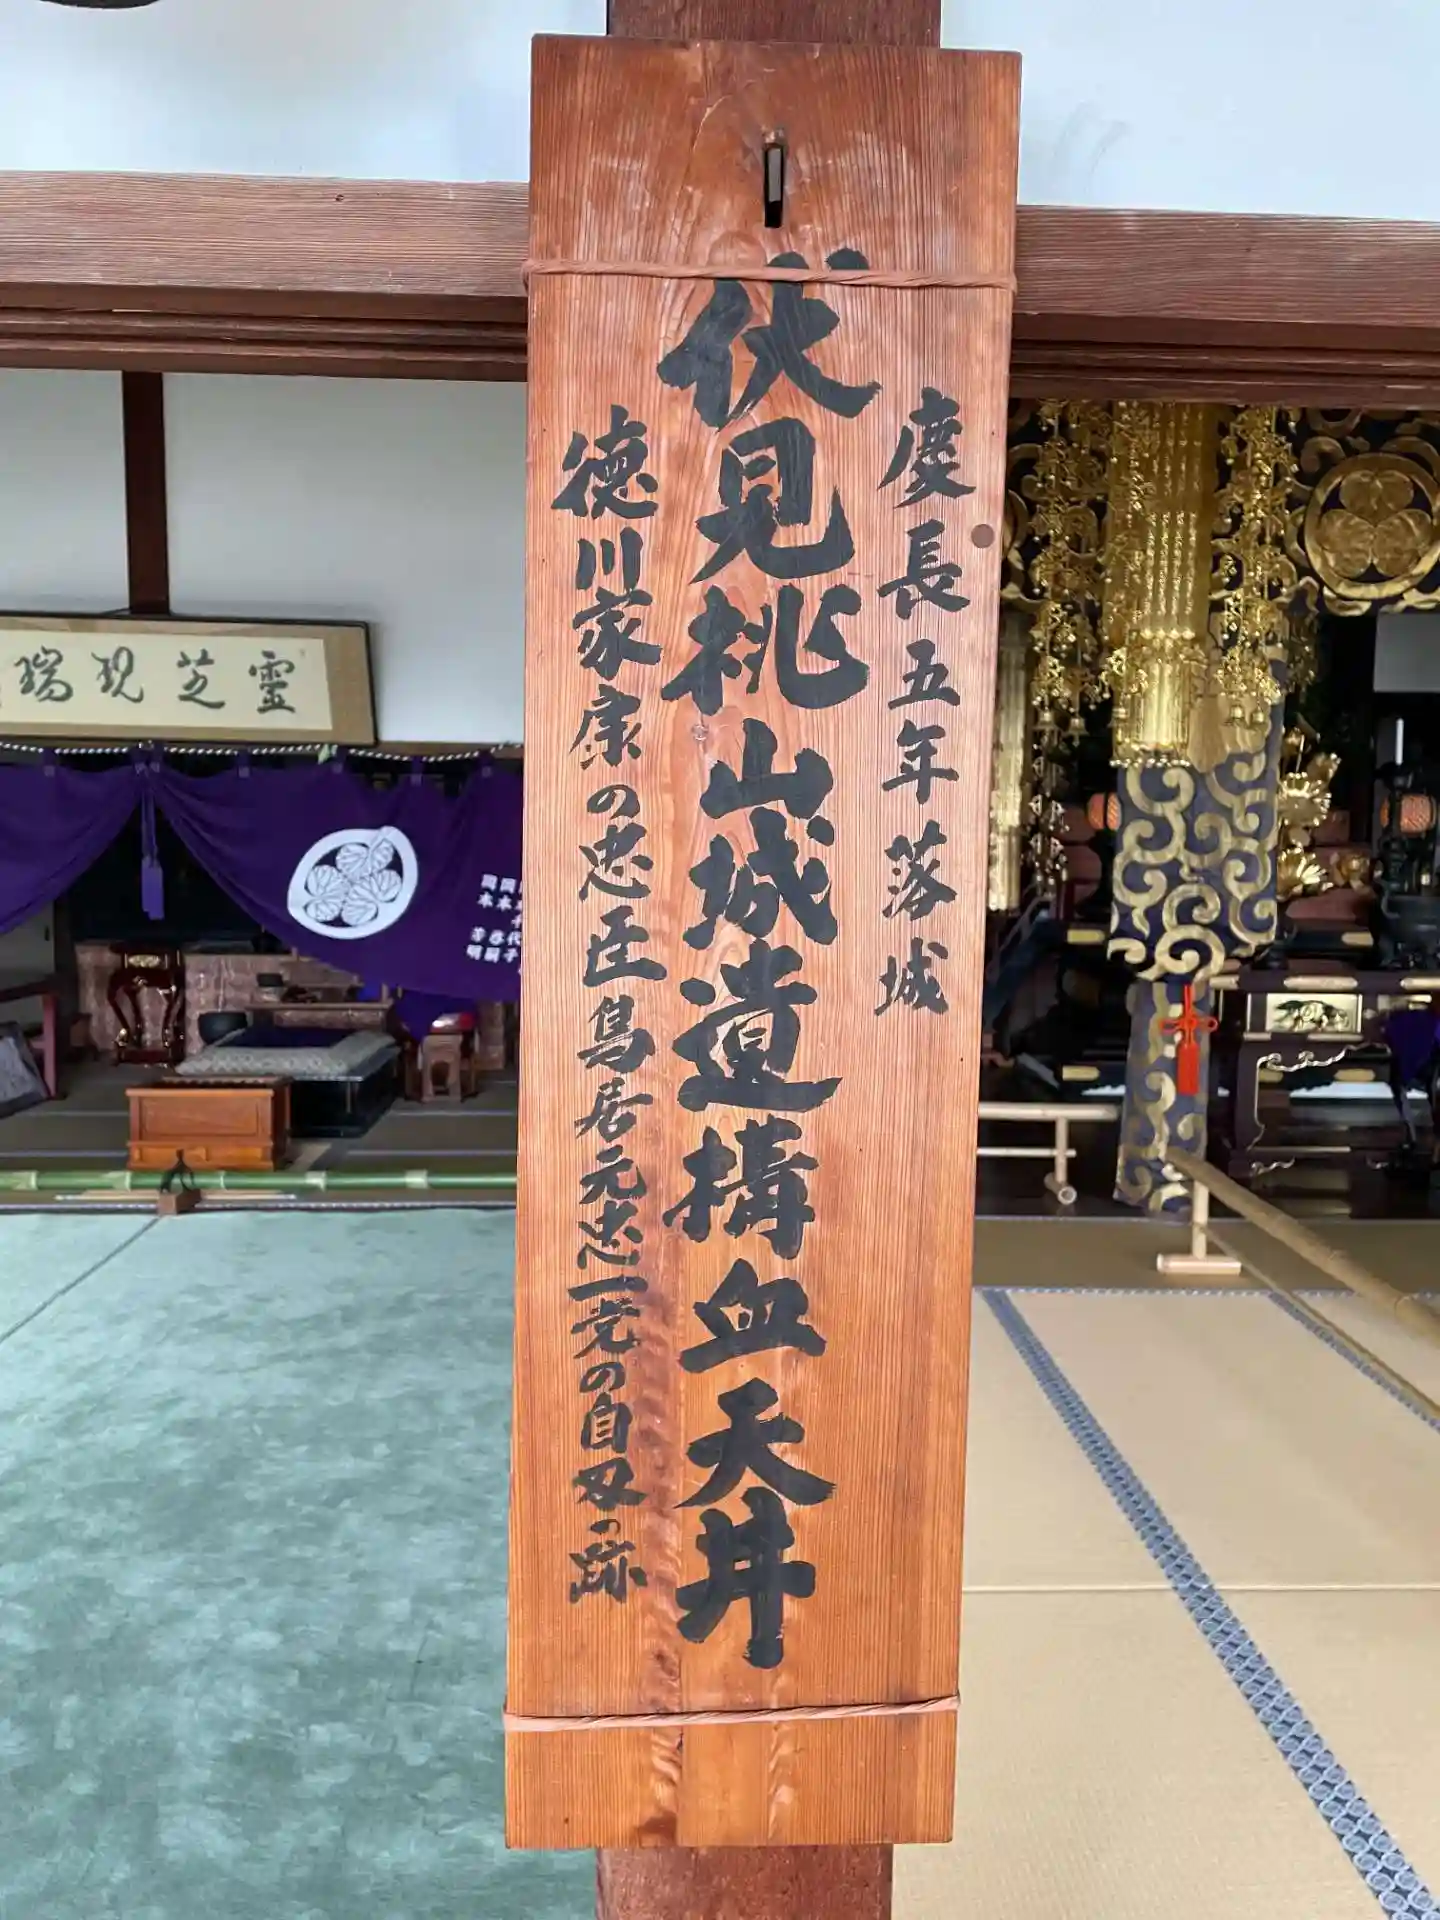 慶長五年落城
伏見桃山城遺構血天井
徳川家康の忠臣鳥居元忠一党の自刃の跡
霊芝現瑞